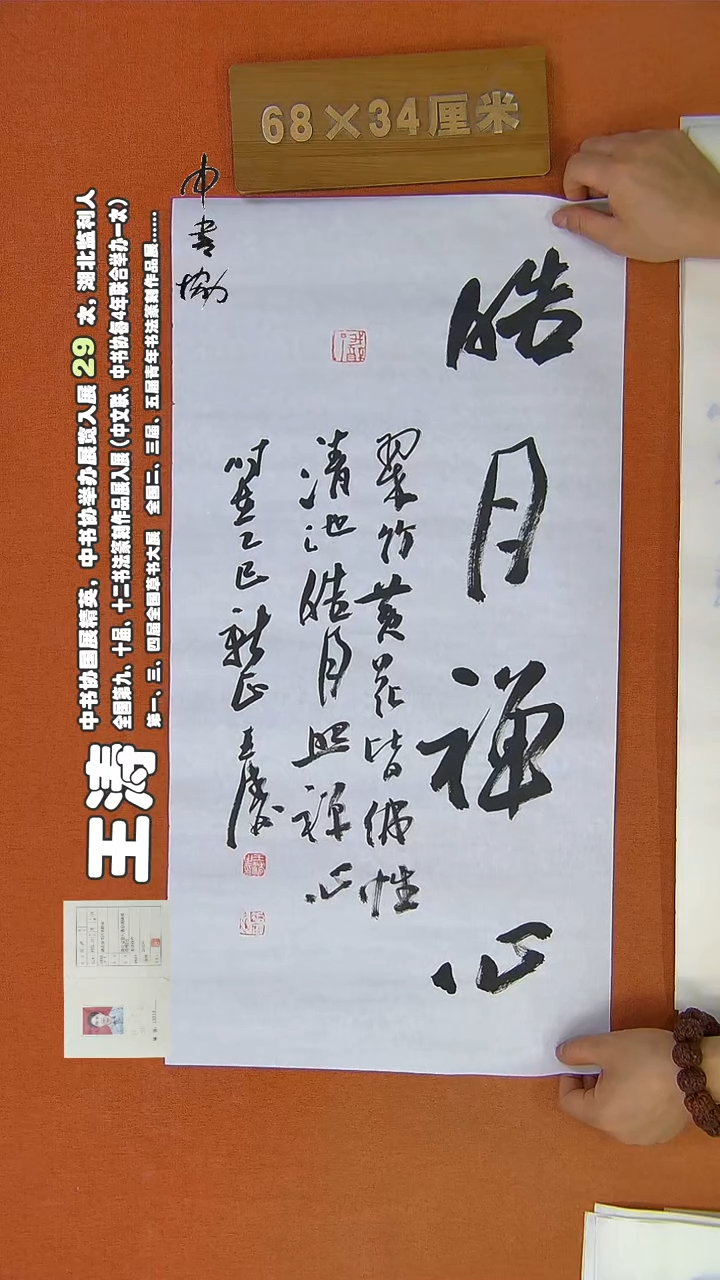 68×34厘米
中书协
皓月禅心
翠竹黄花皆佛性
清池皓月照禅心
时在乙巳新正王涛
王涛
中书协国展精英，中书协举办展览入展 29 次，湖北监利人
全国第九、十届、十二书法篆刻作品展入展（中文联、中书协每4年联合举办一次）
第一、三、四届全国草书大展 全国二、三届、五届青年书法篆刻作品展......